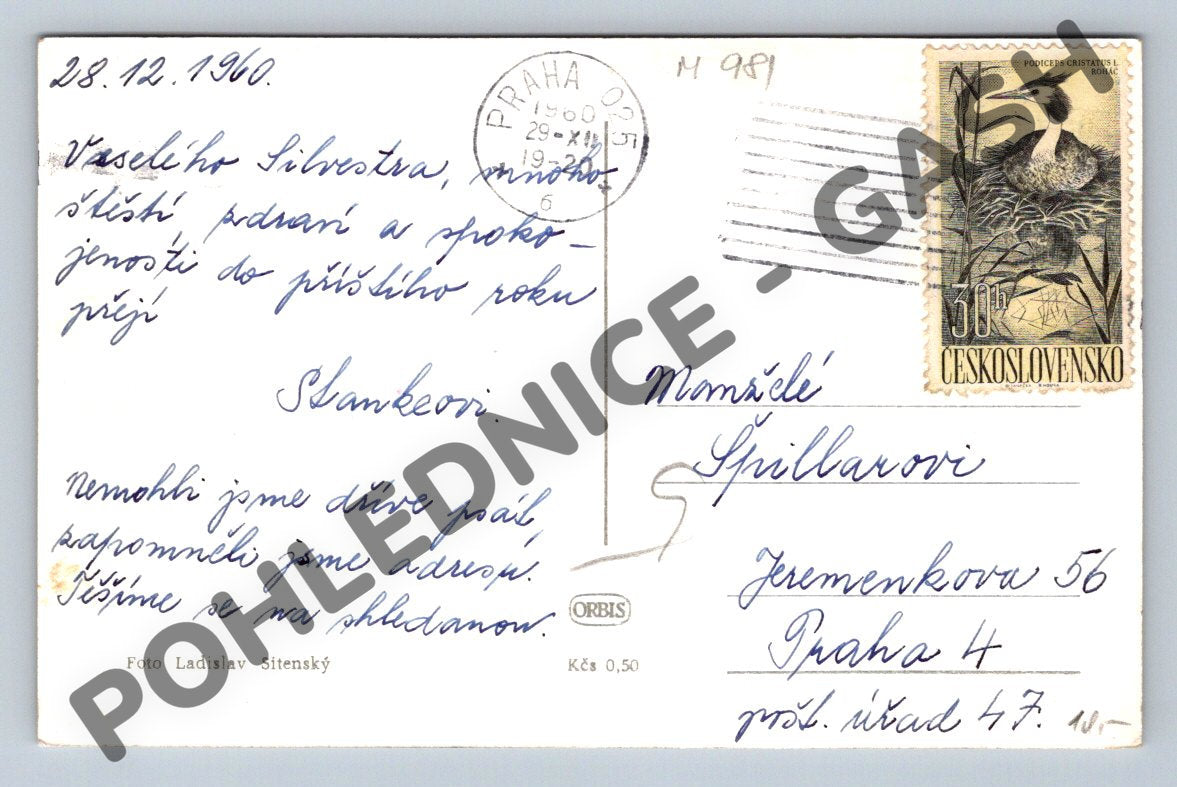 28.12.1960.
Veselého Silvestra, mnoho
štěstí, zdraví a spoko-
jenosti do příštího roku
přejí
Stankeovi.
Nemohli jsme dříve psát,
zapomněli jsme adresu.
Těšíme se na shledanou.
Foto Ladislav Sitenský
ORBIS
Kčs 0,50
M 981
PRAHA 025
1960
29-XII
19-20
6
PODICEPS CRISTATUS L.
ROHÁČ
30h
ČESKOSLOVENSKO
Manželé
Špillarovi
Jeremenkova 56
Praha 4
pošt. úřad 47.
10,-
POHLEDNICE - GASH